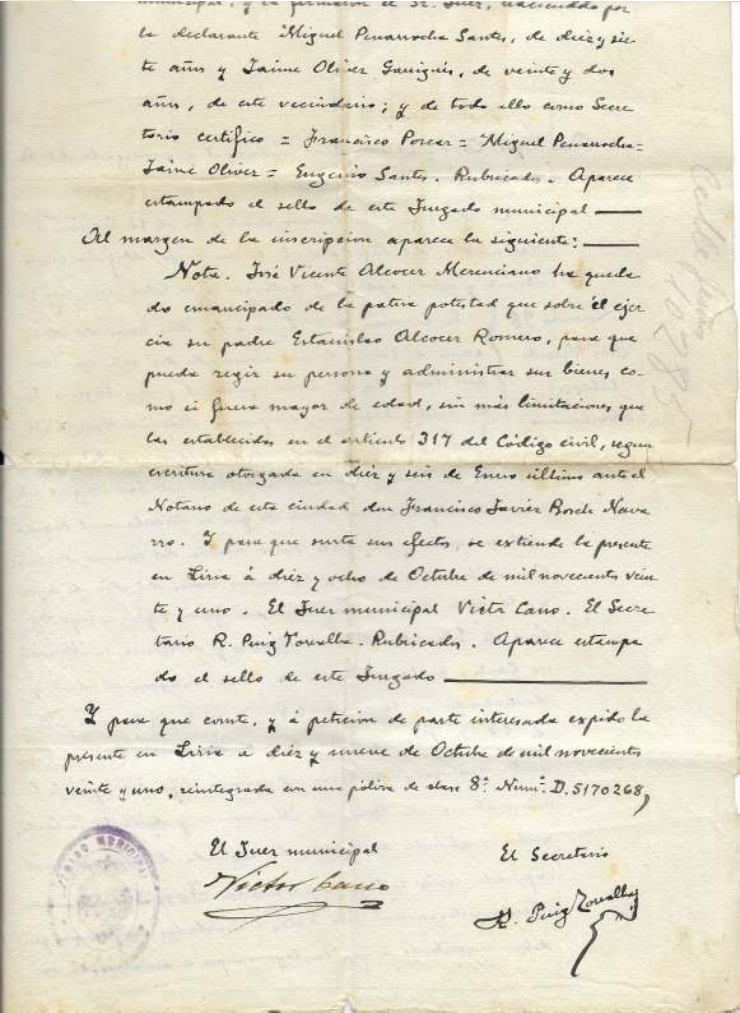 municipal, y la firmaron el Sr. Juez, haciéndolo por
la declarante Miguel Penarrocha Santes, de diez y sie-
te años y Jaime Oliver Garrigués, de veinte y dos
años, de este vecindario; y de todo ello como Secre
tario certifico = Francisco Porcar = Miguel Penarrocha =
Jaime Oliver = Eugenio Santes. Rubricados. Aparece
estampado el sello de este Juzgado municipal
Al margen de la inscripcion aparece la siguiente:
Nota. José Vicente Alcocer Merenciano ha queda
do emancipado de la patria potestad que sobre él ejer
cia su padre Estanislao Alcocer Romero, para que
pueda regir su persona y administrar sus bienes co-
mo si fuera mayor de edad, sin más limitaciones que
las establecidas en el artículo 317 del Código civil, segun
escritura otorgada en diez y seis de Enero último ante el
Notario de esta ciudad don Francisco Javiér Bosch Nava
rro. Y para que surta sus efectos, se extiende la presente
en Liria á diez y ocho de Octubre de mil novecientos vein
te y uno. El Juez municipal Victor Cano. El Secre
tario R. Puig Torralba. Rubricados. Aparece estampa
do el sello de este Juzgado
Y para que conste, y á peticion de parte interesada expido la
presente en Liria á diez y nueve de Octubre de mil novecientos
veinte y uno, reintegrada con una póliza de clase 8ª Numº D.5170268,
El Juez municipal
El Secretario
Victor Cano
R. Puig Torralba
JUZGADO MUNICIPAL